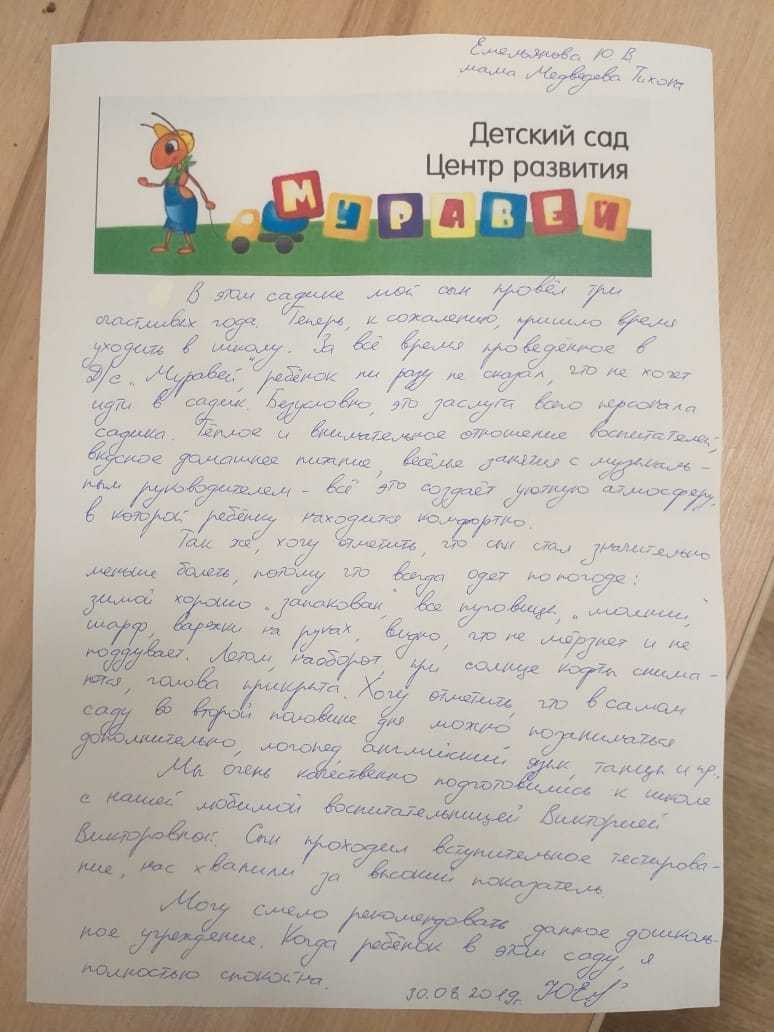 Емельянова Ю. В.
мама Медведева Тихона
Детский сад
Центр развития
МУРАВЕЙ
В этом садике мой сын провёл три
счастливых года. Теперь, к сожалению, пришло время
уходить в школу. За всё время проведённое в
Д/с „Муравей" ребёнок ни разу не сказал, что не хочет
идти в садик. Безусловно, это заслуга всего персонала
садика. Тёплое и внимательное отношение воспитателей,
вкусное домашнее питание, весёлые занятия с музыкаль-
ным руководителем – всё это создаёт уютную атмосферу,
в которой ребёнку находится комфортно.
Так же, хочу отметить, что сын стал значительно
меньше болеть, потому что всегда одет по погоде:
зимой хорошо „запакован", все пуговицы, „молнии",
шарф, варежки на руках, видно, что не мёрзнет и не
поддувает. Летом, наоборот, при солнце кофты снима-
ются, голова прикрыта. Хочу отметить, что в самом
саду во второй половине дня можно позаниматься
дополнительно, логопед, английский язык, танцы и пр.
Мы очень качественно подготовились к школе
с нашей любимой воспитательницей Викторией
Викторовной. Сын проходил вступительное тестирова-
ние, нас хвалили за высокий показатель.
Могу смело рекомендовать данное дошколь-
ное учреждение. Когда ребёнок в этом саду, я
полностью спокойна.
30.08.2019г.